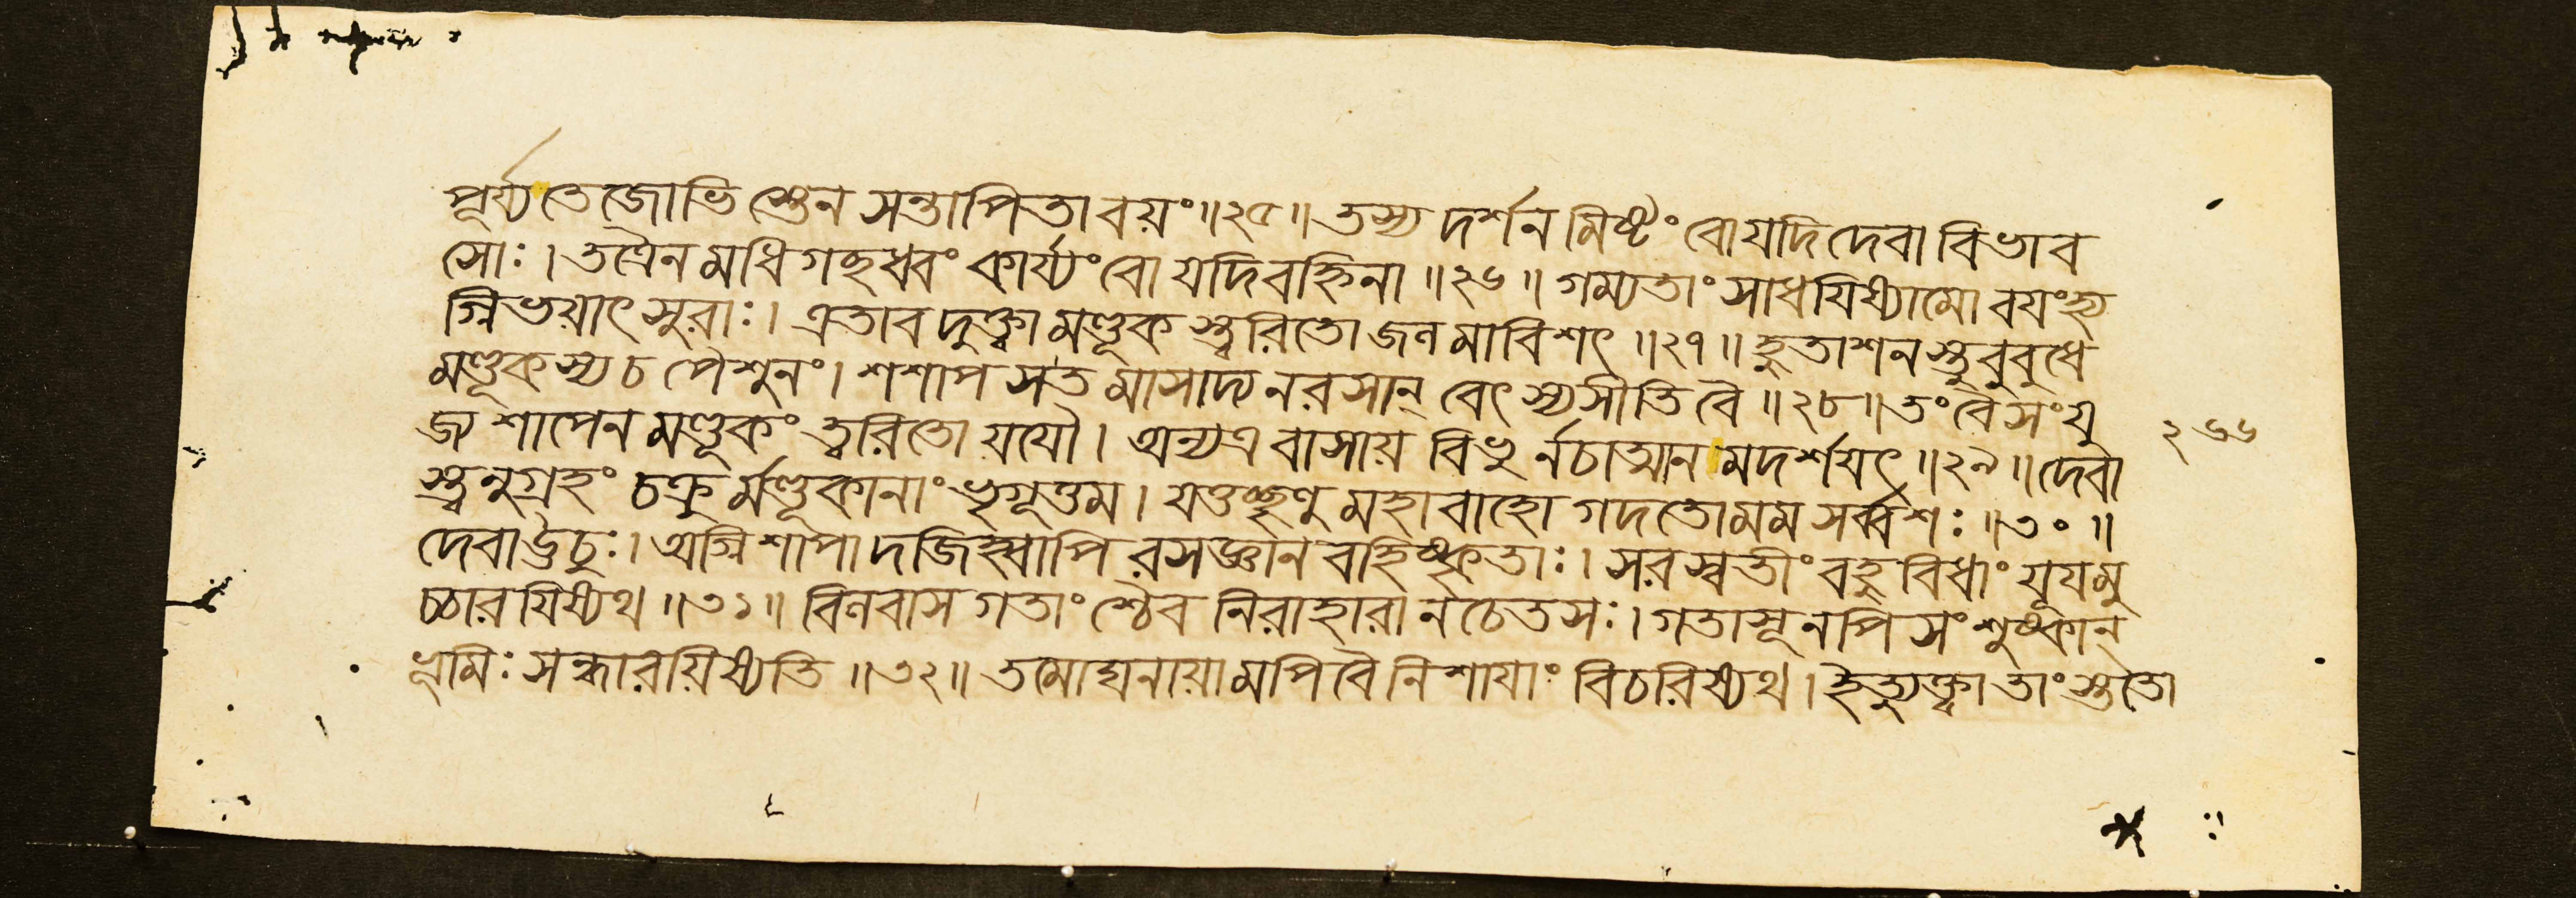 পূর্য্যতেজোভিস্তেন সন্তাপিতা বয়ং॥২৫॥ তস্য দর্শনমিষ্টং বো যদি দেবা বিভাব
সোঃ। তত্রৈনমধিগচ্ছধ্বং কার্য্যং বো যদি বহ্নিনা॥২৬॥ গম্যতাং সাধযিষ্যামো বযংহ্য
গ্নিভয়াৎ সুরাঃ। এতাবদুক্ত্বা মণ্ডূকস্ত্বরিতো জলমাবিশৎ॥২৭॥ হুতাশনস্তু বুবুধে
মণ্ডূকস্য চ পৈশুনং। শশাপ স তমাসাদ্য ন রসান্ বেৎস্যসীতি বৈ॥২৮॥ তং বৈ সংযু
জ্য শাপেন মণ্ডূকং ত্বরিতো যযৌ। অন্যত্র বাসায় বিভুর্নচাত্মানমদর্শযৎ॥২৯॥ দেবা
স্ত্বনুগ্রহং চক্রুর্মণ্ডূকানাং ভৃগূত্তম। যত্তচ্ছৃণু মহাবাহো গদতো মম সর্ব্বশঃ॥৩০॥
দেবা ঊচুঃ। অগ্নিশাপাদজিহ্বাপি রসজ্ঞানবহিষ্কৃতাঃ। সরস্বতীং বহুবিধাং যূযমু
চ্চারযিষ্যথ॥৩১॥ বিলবাসগতাংশ্চৈব নিরাহারানচেতসঃ। গতাসূনপি সংশুষ্কান্
ভূমিঃ সন্ধারযিষ্যতি॥৩২॥ তমোঘনায়ামপি বৈ নিশাযাং বিচরিষ্যথ। ইত্যুক্ত্বা তাংস্ততো
২৬৬